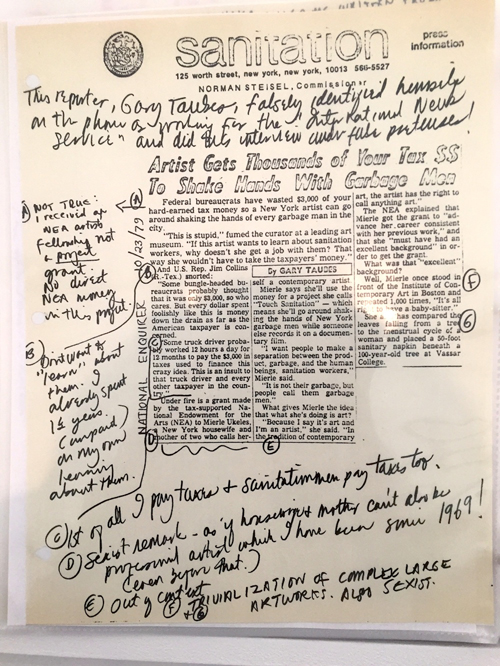 sanitation
press
information
125 worth street, new york, new york, 10013 566-5527
NORMAN STEISEL, Commissioner
This reporter, Gary Taubes, falsely identified himself
on the phone as working for the "International News
Service" and did this interview under false pretenses!
Artist Gets Thousands of Your Tax $$
To Shake Hands With Garbage Men
(A) NOT TRUE:
I received an
NEA artist
Fellowship not
a project
grant.
No direct
NEA money
in this project.
(B) Don't want to
"learn" about
them. I
already spent
1½ years
(unpaid)
on my own
learning
about them.
NATIONAL ENQUIRER 10/23/79
(A)
Federal bureaucrats have wasted $3,000 of your
hard-earned tax money so a New York artist can go
around shaking the hands of every garbage man in the
city.
"This is stupid," fumed the curator at a leading art
museum. "If this artist wants to learn about sanitation
workers, why doesn't she get a job with them? That
way she wouldn't have to take the taxpayers' money."
(B)
And U.S. Rep. Jim Collins
(R.-Tex.) snorted:
"Some bungle-headed bu-
reaucrats probably thought
that it was only $3,000, so who
cares. But every dollar spent
foolishly like this is money
down the drain as far as the
American taxpayer is con-
cerned.
(C)
"Some truck driver proba-
bly worked 12 hours a day for
12 months to pay the $3,000 in
taxes used to finance this
crazy idea. This is an insult to
that truck driver and every
other taxpayer in the coun-
try."
Under fire is a grant made
by the tax-supported Na-
tional Endowment for the
Arts (NEA) to Mierle Ukeles,
a New York housewife and
mother of two who calls her-
(D)
By GARY TAUBES
self a contemporary artist.
Mierle says she'll use the
money for a project she calls
"Touch Sanitation" — which
means she'll go around shak-
ing the hands of New York
garbage men while someone
else records it on a documen-
tary film.
"I want people to make a
separation between the prod-
uct, garbage, and the human
beings, sanitation workers,"
Mierle said.
"It is not their garbage, but
people call them garbage
men."
What gives Mierle the idea
that what she's doing is art?
"Because I say it's art and
I'm an artist," she said. "In
the tradition of contemporary
(E)
art, the artist has the right to
call anything art."
The NEA explained that
Mierle got the grant to "ad-
vance her career consistent
with her previous work," and
that she "must have had an
excellent background" in or-
der to get the grant.
What was that "excellent"
background?
(F)
Well, Mierle once stood in
front of the Institute of Con-
temporary Art in Boston and
repeated 1,000 times, "It's all
right to have a baby-sitter."
(G)
She has compared the
leaves falling from a tree
to the menstrual cycle of a
woman and placed a 50-foot
sanitary napkin beneath a
100-year-old tree at Vassar
College.
(C) 1st of all I pay taxes & sanitationmen pay taxes too.
(D) Sexist remark - as if housewife & mother can't also be
professional artist which I have been since 1969!
(even before that.)
(E) Out of context
(F) & (G) TRIVIALIZATION OF COMPLEX LARGE
ARTWORKS. ALSO SEXIST.